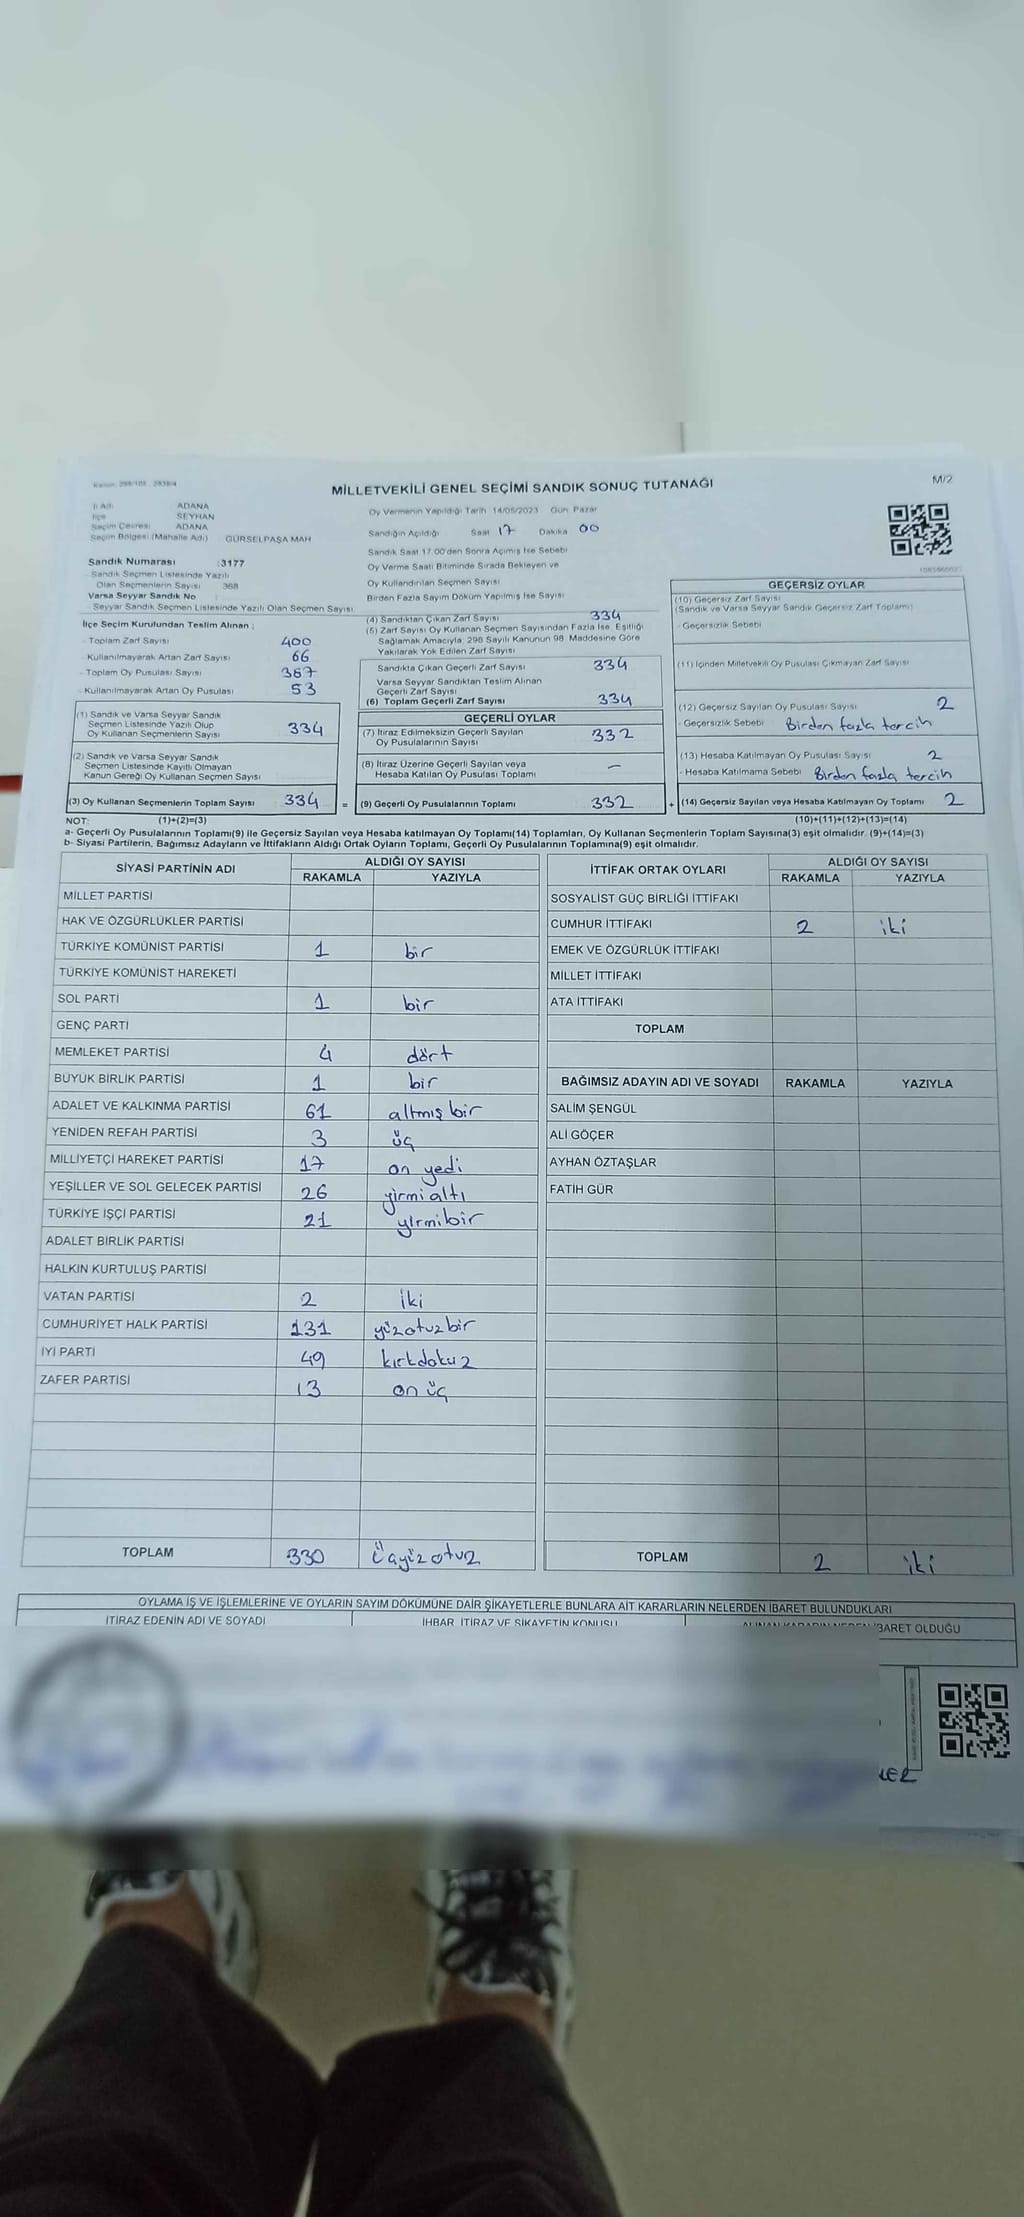 Kanun: 298/105 , 2839/4
MİLLETVEKİLİ GENEL SEÇİMİ SANDIK SONUÇ TUTANAĞI
M/2
İl Adı ADANA
İlçe SEYHAN
Seçim Çevresi ADANA
Seçim Bölgesi (Mahalle Adı) GÜRSELPAŞA MAH
Sandık Numarası :3177
- Sandık Seçmen Listesinde Yazılı
Olan Seçmenlerin Sayısı 368
Varsa Seyyar Sandık No :
- Seyyar Sandık Seçmen Listesinde Yazılı Olan Seçmen Sayısı
İlçe Seçim Kurulundan Teslim Alınan ;
- Toplam Zarf Sayısı 400
- Kullanılmayarak Artan Zarf Sayısı 66
- Toplam Oy Pusulası Sayısı 387
- Kullanılmayarak Artan Oy Pusulası 53
(1) Sandık ve Varsa Seyyar Sandık
Seçmen Listesinde Yazılı Olup
Oy Kullanan Seçmenlerin Sayısı 334
(2) Sandık ve Varsa Seyyar Sandık
Seçmen Listesinde Kayıtlı Olmayan
Kanun Gereği Oy Kullanan Seçmen Sayısı
(3) Oy Kullanan Seçmenlerin Toplam Sayısı 334 =
Oy Vermenin Yapıldığı Tarih 14/05/2023 Gün: Pazar
Sandığın Açıldığı Saat 17 Dakika 00
Sandık Saat 17.00'den Sonra Açımış İse Sebebi
Oy Verme Saati Bitiminde Sırada Bekleyen ve
Oy Kullandırılan Seçmen Sayısı
Birden Fazla Sayım Döküm Yapılmış İse Sayısı
(4) Sandıktan Çıkan Zarf Sayısı 334
(5) Zarf Sayısı Oy Kullanan Seçmen Sayısından Fazla İse, Eşitliği
Sağlamak Amacıyla; 298 Sayılı Kanunun 98. Maddesine Göre
Yakılarak Yok Edilen Zarf Sayısı
Sandıkta Çıkan Geçerli Zarf Sayısı 334
Varsa Seyyar Sandıktan Teslim Alınan
Geçerli Zarf Sayısı
(6) Toplam Geçerli Zarf Sayısı 334
GEÇERLİ OYLAR
(7) İtiraz Edilmeksizin Geçerli Sayılan
Oy Pusulalarının Sayısı 332
(8) İtiraz Üzerine Geçerli Sayılan veya
Hesaba Katılan Oy Pusulası Toplamı —
(9) Geçerli Oy Pusulalarının Toplamı 332 +
GEÇERSİZ OYLAR
(10) Geçersiz Zarf Sayısı
(Sandık ve Varsa Seyyar Sandık Geçersiz Zarf Toplamı)
- Geçersizlik Sebebi
(11) İçinden Milletvekili Oy Pusulası Çıkmayan Zarf Sayısı
(12) Geçersiz Sayılan Oy Pusulası Sayısı 2
- Geçersizlik Sebebi Birden fazla tercih
(13) Hesaba Katılmayan Oy Pusulası Sayısı 2
- Hesaba Katılmama Sebebi Birden fazla tercih
(14) Geçersiz Sayılan veya Hesaba Katılmayan Oy Toplamı 2
NOT: (1)+(2)=(3) (10)+(11)+(12)+(13)=(14)
a- Geçerli Oy Pusulalarının Toplamı(9) ile Geçersiz Sayılan veya Hesaba katılmayan Oy Toplamı(14) Toplamları, Oy Kullanan Seçmenlerin Toplam Sayısına(3) eşit olmalıdır. (9)+(14)=(3)
b- Siyasi Partilerin, Bağımsız Adayların ve İttifakların Aldığı Ortak Oyların Toplamı, Geçerli Oy Pusulalarının Toplamına(9) eşit olmalıdır.
SİYASİ PARTİNİN ADI ALDIĞI OY SAYISI
RAKAMLA YAZIYLA
MİLLET PARTİSİ
HAK VE ÖZGÜRLÜKLER PARTİSİ
TÜRKİYE KOMÜNİST PARTİSİ 1 bir
TÜRKİYE KOMÜNİST HAREKETİ
SOL PARTİ 1 bir
GENÇ PARTİ
MEMLEKET PARTİSİ 4 dört
BÜYÜK BİRLİK PARTİSİ 1 bir
ADALET VE KALKINMA PARTİSİ 61 altmış bir
YENİDEN REFAH PARTİSİ 3 üç
MİLLİYETÇİ HAREKET PARTİSİ 17 on yedi
YEŞİLLER VE SOL GELECEK PARTİSİ 26 yirmi altı
TÜRKİYE İŞÇİ PARTİSİ 21 yirmibir
ADALET BİRLİK PARTİSİ
HALKIN KURTULUŞ PARTİSİ
VATAN PARTİSİ 2 iki
CUMHURİYET HALK PARTİSİ 131 yüzotuzbir
İYİ PARTİ 49 kırkdokuz
ZAFER PARTİSİ 13 on üç
TOPLAM 330 Üçyüzotuz
İTTİFAK ORTAK OYLARI ALDIĞI OY SAYISI
RAKAMLA YAZIYLA
SOSYALİST GÜÇ BİRLİĞİ İTTİFAKI
CUMHUR İTTİFAKI 2 iki
EMEK VE ÖZGÜRLÜK İTTİFAKI
MİLLET İTTİFAKI
ATA İTTİFAKI
TOPLAM
BAĞIMSIZ ADAYIN ADI VE SOYADI RAKAMLA YAZIYLA
SALİM ŞENGÜL
ALİ GÖÇER
AYHAN ÖZTAŞLAR
FATİH GÜR
TOPLAM 2 iki
OYLAMA İŞ VE İŞLEMLERİNE VE OYLARIN SAYIM DÖKÜMÜNE DAİR ŞİKAYETLERLE BUNLARA AİT KARARLARIN NELERDEN İBARET BULUNDUKLARI
İTİRAZ EDENİN ADI VE SOYADI İHBAR, İTİRAZ VE ŞİKAYETİN KONUSU İBARET OLDUĞU